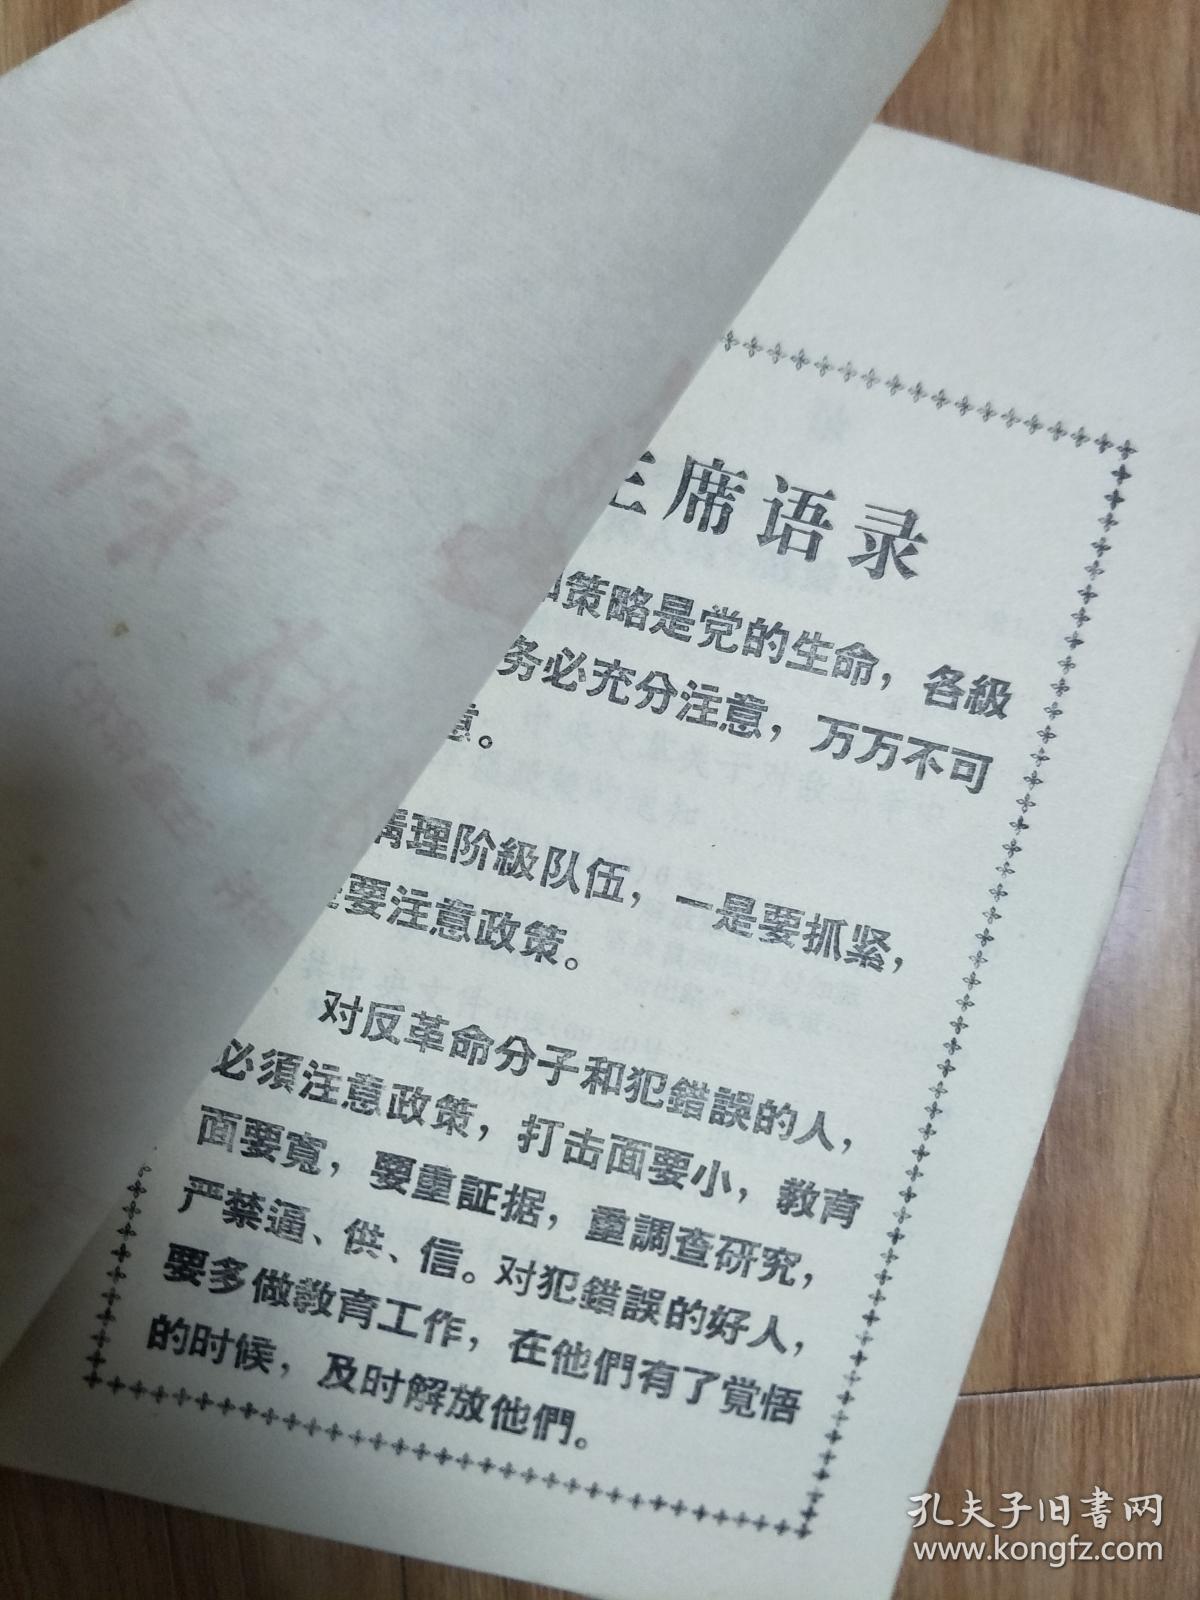 主席语录
策略是党的生命，各級
务必充分注意，万万不可
意。
清理阶級队伍，一是要抓紧，
要注意政策。
对反革命分子和犯錯誤的人，
必須注意政策，打击面要小，教育
面要寬，要重証据，重調查研究，
严禁逼、供、信。对犯錯誤的好人，
要多做教育工作，在他們有了覚悟
的时候，及时解放他們。
孔夫子旧書网
www.kongfz.com